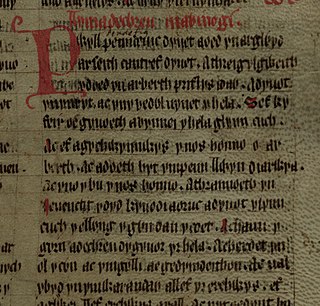 llyma dechreu mabinogi.
Pwyll pendeuic dyuet aoed yn arglwyd
arseith cantref dyuet. Athreigylgweith
ydoed ynarberth priflys idaw. adyuot
ynyvryt. ac yny vedwl uynet yhela. Sef ky
feir oe gyuoeth avynnei yhela glynn cuch.
Ac ef agychwynnwys ynos honno o ar
berth. Ac adoeth hyt ympenn llwyn diarwya.
ac yno ybu ynos honno. Athrannoeth yn
ieuenctit ydyd kyuodi aoruc adyuot ylynn
cuch yellwng ygwn dan ycoet. Achanu y
gorn adechreu dygyuor yr hela. Acherdet yn
ol y cwn ac ymgolli ae gedymdeithon. Ac ual
ybyd ynymwarandaw allef yr erchwys. ef